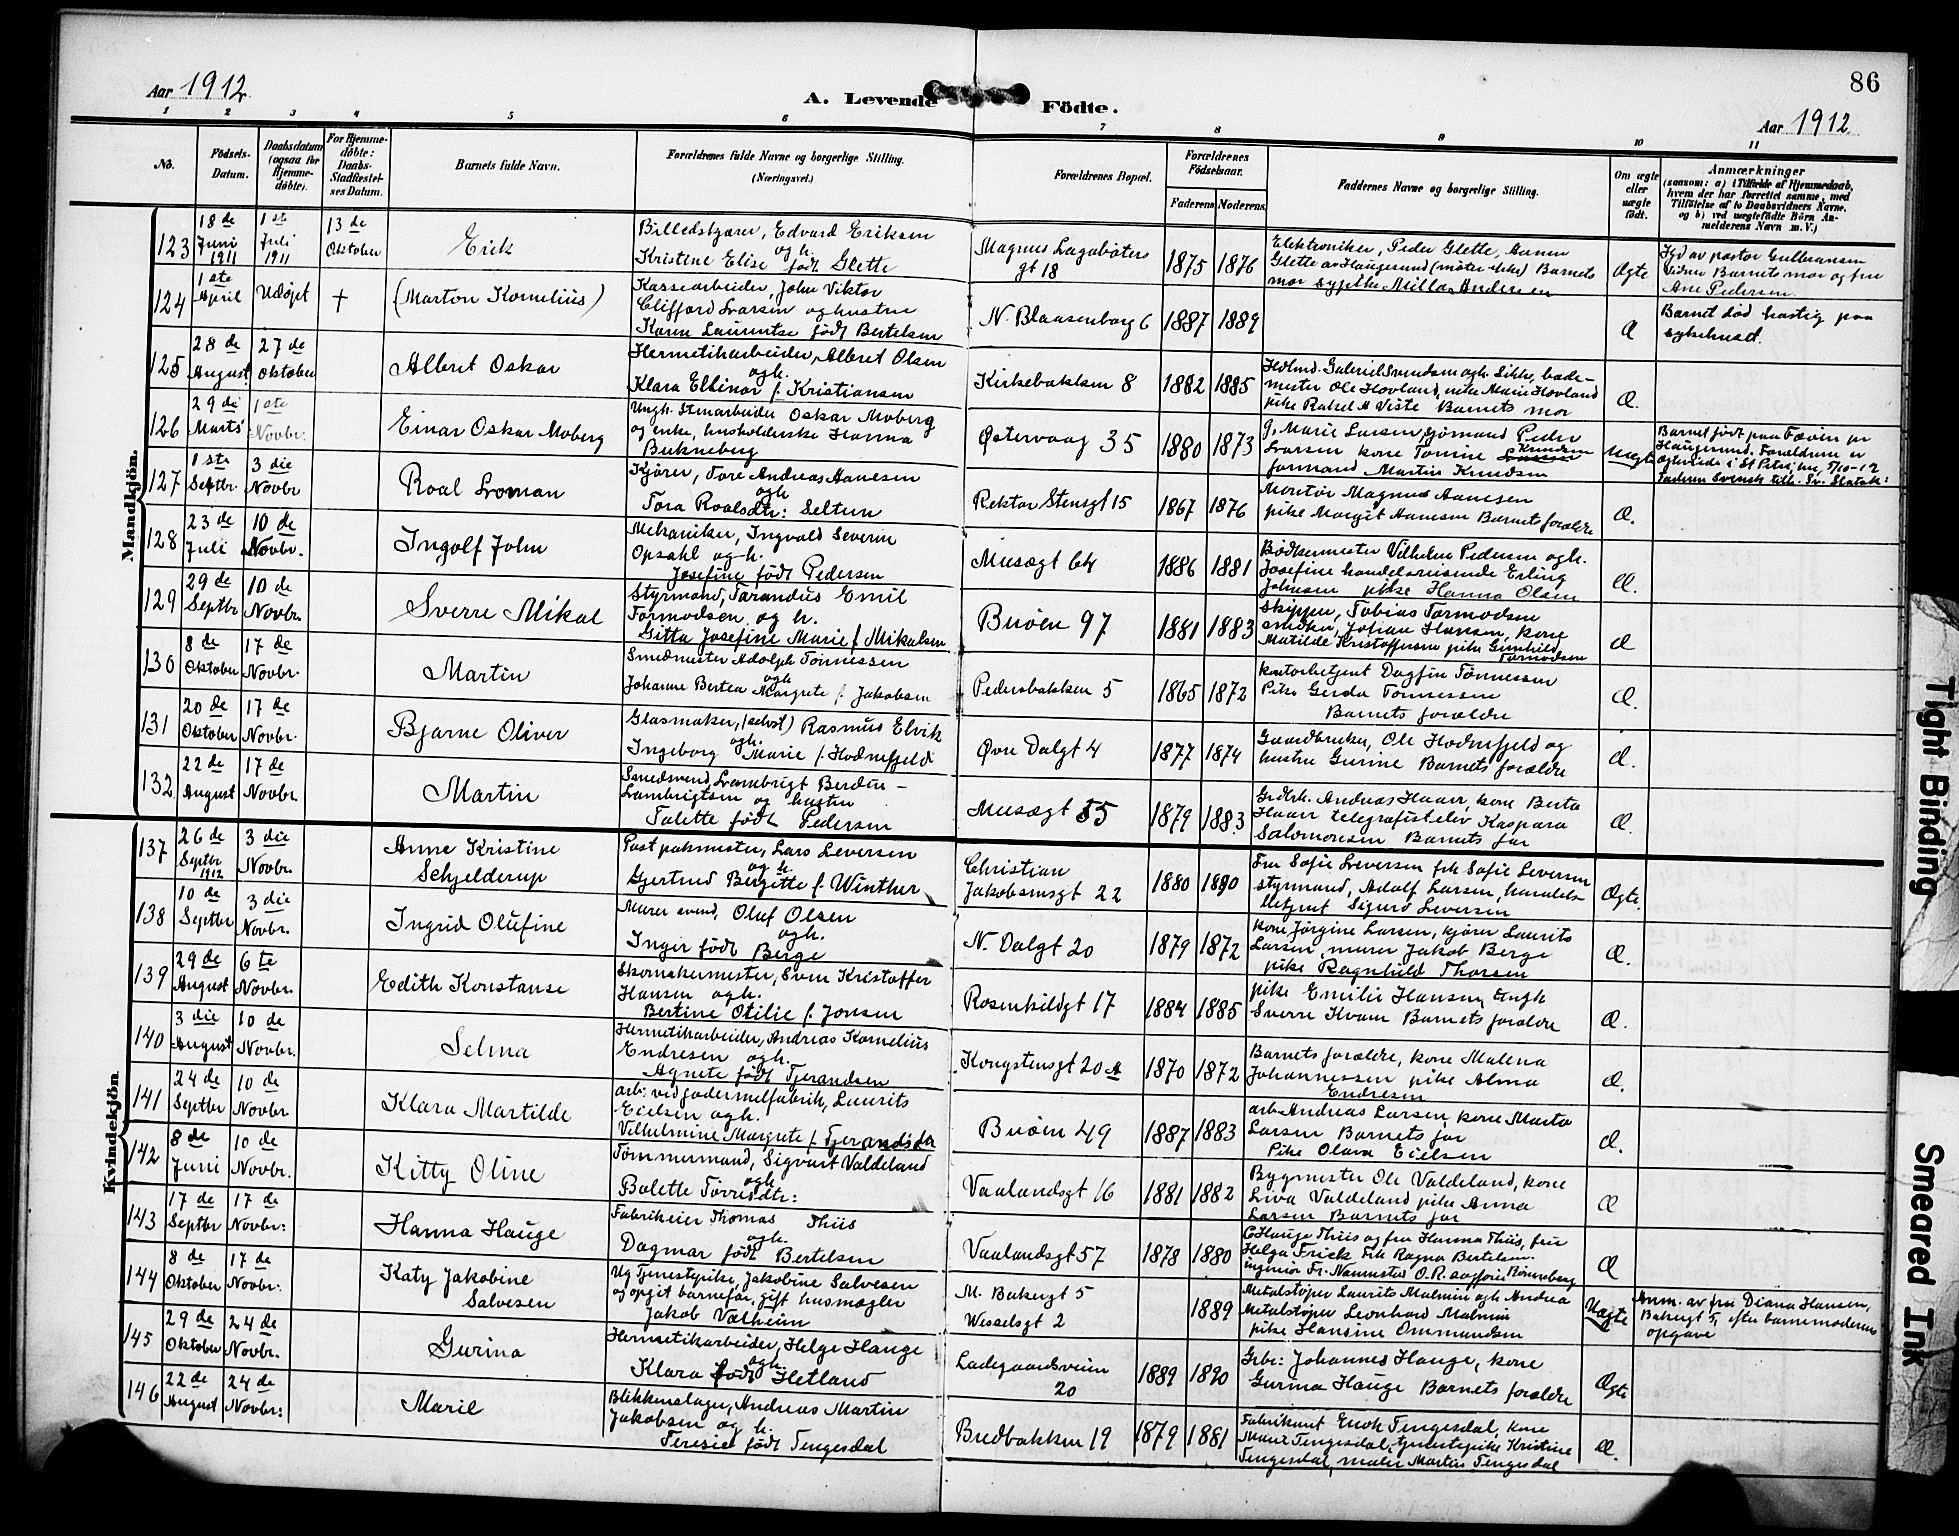 86
Aar 1912.
A. Levende Födte.
Aar 1912.
1 2 3 4 5 6 7 8 9 10 11
No.
Födsels-Datum.
Daabsdatum (ogsaa for Hjemmedöbte).
For Hjemmedöbte: Daabs-Stadfæstelses Datum.
Barnets fulde Navn.
Forældrenes fulde Navne og borgerlige Stilling.
(Næringsvei.)
Forældrenes Bopæl.
Forældrenes Födselsaar.
Faderens Moderens
Faddernes Navne og borgerlige Stilling.
Om ægte eller uægte födt.
Anmærkninger
(saasom: a) i Tilfælde af Hjemmedaab, hvem der har forrettet samme, med Tilföielse af to Daabsvidners Navne, og b) ved uægtefödte Börn Anmelderens Navn m. V.)
Mandkjön.
123 18de Juni 1911 1ste Juli 1911 13de Oktober Erik
Billedskjærer, Edvard Eriksen
og h.
Kristine Elise født Glette
Magnus Lagabøters
gt 18
1875 1876
Elektroniker, Peder Glette,
Glette av Haugesund (møter ikke) Barnets
mor sypike Milla Andersen
Ægte
Hjd av pastor Gulbransen
Vidne Barnets mor og fru
Ane Pedersen
124 1ste April Udøpt + (Marton Kornelius)
Kassearbeider, John Viktor
Clifford Larsen og hustru
Karen Laurentse født Bertelsen
N. Blaasenborg 6 1887 1889
Æ
Barnet død hastig paa
sykehused.
125 28de August 27de Oktober Albert Oskar
Hermetikarbeider, Albert Olsen
og h.
Klara Ellinor f. Kristiansen
Kirkebakken 8 1882 1885
Gabriel Svendsen og h.
mester Ole Hovland, enke Marie Hovland
pike Rakel Viste Barnets mor
Æ.
126 29de Marts 1ste Novbr. Einar Oskar Moberg
Ungk. Stenarbeider Oskar Moberg
og enke, husholderske Hanna
Bukneberg
Østervaag 35 1880 1873
Marie Larsen sjømand Peder
Larsen kone Tomine Knudsen
formand Martin Knudsen
Uægte
Barnet født paa Fæøen pr
Haugesund. Forældrene er
ægteviede i St Petri, 5/10-12
Faderen Svensk
127 1ste Septbr. 3die Novbr Roal Loman
Kjører, Tore Andreas Aanesen
og h.
Tora Roalsdtr: Seltun
Rektor Stensgt 15 1867 1876
Montør Magnus Aanesen
pike Margit Aanesen Barnets forældre
Æ.
128 23de Juli 10de Novbr. Ingolf John
Mekaniker, Ingvald Severin
Opsahl og h.
Josefine født Pedersen
Musægt 64 1886 1881
Bødkermester Vilhelm Pedersen og h.
Josefine handelsreisende Erling
Johnsen pike Hanna Olsen
Æ.
129 29de Septbr 10de Novbr. Sverre Mikal
Styrmand, Tarandus Emil
Tormodsen og h.
Gitta Josefine Marie f. Mikalsen
Buøen 97 1881 1883
Skipper, Tobias Tormodsen
snedker, Johan Hansen, kone
Matilde Kristoffersen pike Gunhild
Tormodsen
Æ
130 8de Oktober 17de Novbr. Martin
Smedmester Adolph Tønnessen
og h
Johanne Bertea Margrete f. Jakobsen
Pedersbakken 5 1865 1872
kontorbetjent Dagfin Tønnessen
Pike Gerda Tønnessen
Barnets forældre
Æ.
131 20de Oktober 17de Novbr. Bjarne Oliver
Glasmaker, (selvst) Rasmus Elvik
og h.
Ingeborg Marie f. Hodnefjeld
Øvre Dalgt 4 1877 1874
Gaardbruker, Ole Hodnefjeld og
hustru Gurine Barnets forældre
Æ.
132 22de August 17de Novbr Martin
Smedsvend Lambrigt Berdin-
Lambrigtsen og hustru
Talette født Pedersen
Musægt 55 1879 1883
Grdbr. Andreas Haar, kone Berta
Haar telegrafist elev Kaspara
Salomonsen Barnets far
Æ.
Kvindekjön.
137 26de Septbr 1912 3die Novbr. Anne Kristine
Schjelderup
Post pakmester, Lars Leversen
og h.
Gjertrud Bergitte f. Winther
Christian
Jakobsensgt 22
1880 1890
Fru Sofie Leversen frk Sofie Leversen
styrmand, Adolf Larsen, handels-
betjent Sigurd Leversen
Ægte.
138 10de Septbr 3die Novbr. Ingrid Olufine
Murer svend, Oluf Olsen
og h.
Inger født Berge
N. Dalgt 20 1879 1872
kone Jørgine Larsen, kjører Laurits
Larsen, murer Jakob Berge
pike Ragnhild Thorsen
Æ.
139 29de August 6te Novbr. Edith Konstanse
Skomakermester, Sven Kristoffer
Hansen og h.
Bertine Otilie f. Jonsen
Rosenkildgt 17 1884 1885
pike Emilie Hansen ungk
Sverre Kvam Barnets forældre
Æ.
140 3die August 10de Novbr. Selma
Hermetikarbeider, Andreas Kornelius
Endresen og h.
Agnete født Tjerandsen
Kongstensgt 20 A 1870 1872
Barnets forældre, kone Malena
Johannessen pike Alma
Endresen
Æ.
141 24de Septbr 10de Novbr. Klara Martilde
arb. ved fodermelfabrik, Laurits
Eielsen og h.
Vilhelmine Margrete f. Tjerandsdtr
Buøen 49 1887 1883
arb. Andreas Larsen, kone Marta
Larsen Barnets far
Pike Olava Eielsen
Æ.
142 8de Juni 10de Novbr. Kitty Oline
Tømmermand, Sigvart Valdeland
og h.
Bolette Torresdtr:
Vaalandsgt 16 1881 1882
Bygmester Ole Valdeland, kone
Liva Valdeland pike Anna
Larsen Barnets far
Æ
143 17de Septbr 17de Novbr: Hanna Hauge
Fabrikeier Thomas Thiis
og h.
Dagmar født Bertelsen
Vaalandsgt 57 1878 1880
C Hauge Thiis og fru Hanna Thiis, frue
Helga Frick Frk Ragna Bertelsen
ingeniør Fr. Nannestad O.R. Rønneberg
Æ
144 8de Oktober 17de Novbr: Katy Jakobine
Salvesen
Ug Tjenestepike, Jakobine Salvesen
og opgit barnefar, gift husmægler
Jakob Valheim
M. Bakergt 5
Wesselsgt 2
1889
Metalstøper Laurits Malmin og h. Andrea
Metalstøper Leonhard Malmin
pike Hansine Ommundsen
Uægte
Anm. av fru Diana Hansen,
Bakergt 5, efter barnemoderens
opgave
145 29de Oktober 24de Novbr. Gurina
Hermetikarbeider, Helge Hauge
og h.
Klara født Hetland
Ladegaardsveien
20
1889 1890
Grbr: Johannes Hauge, kone
Gurina Hauge Barnets forældre
Ægte
146 22de August 24de Novbr: Marie
Blikkenslager, Andreas Martin
Jakobsen og h.
Teresie født Tengesdal
Bredbakken 19 1879 1881
Fabrikant Enok Tengesdal, kone
Marie Tengesdal, tjenestepike Kristine
Tengesdal, maler Martin Tengesdal
Æ.
Tight Binding
Smeared Ink